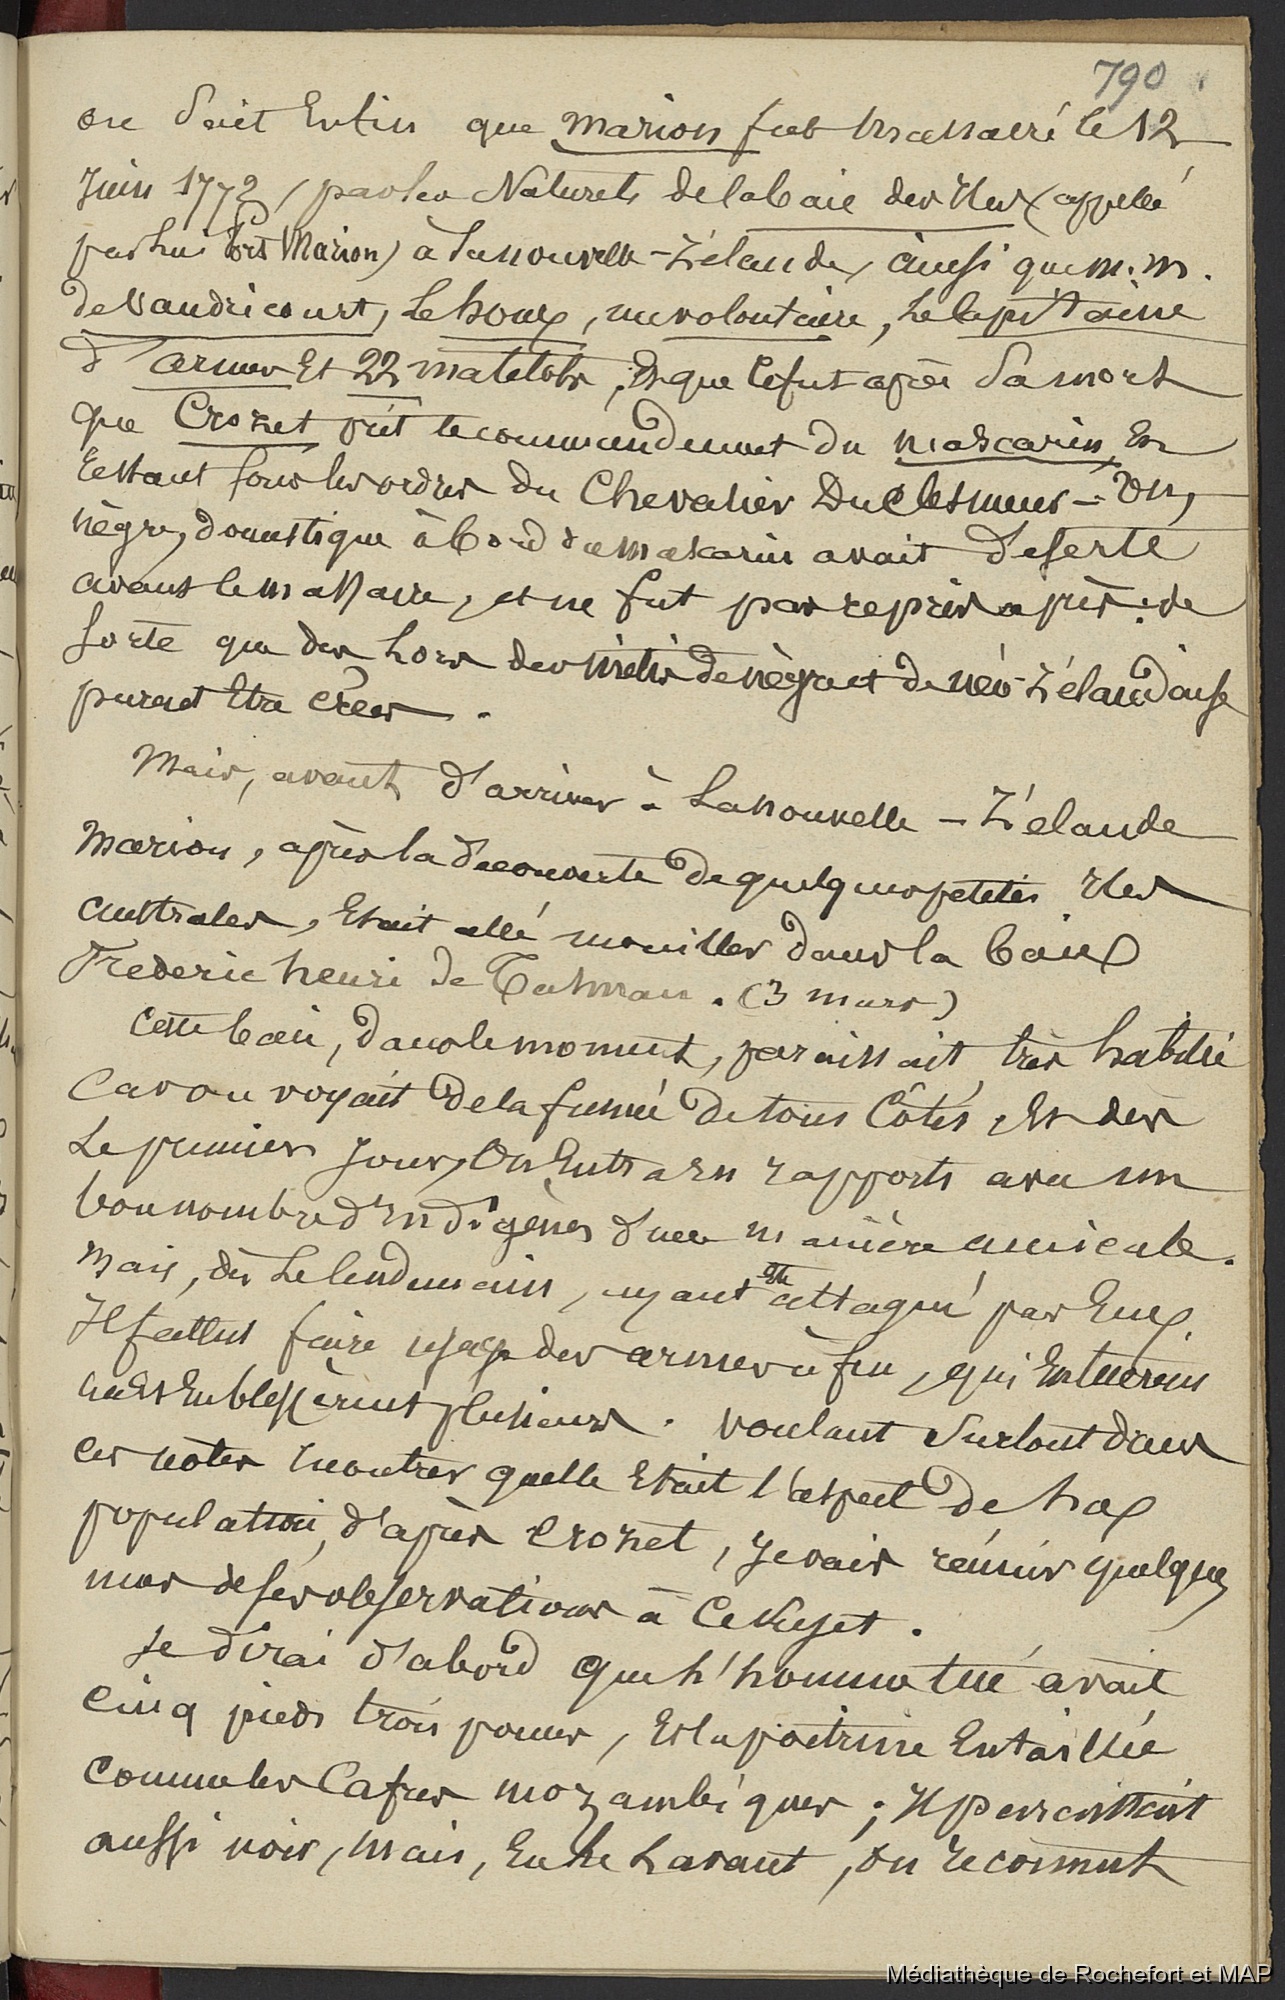 790
on sait enfin que Marion fut massacré le 12
Juin 1772, par les Naturels de la baie des Iles (appellé
par lui Port Marion) à la nouvelle-Zélande, ainsi que m.m.
de Vaudricourt, Lehoux, un volontaire, le Capitaine
d'armes et 22 matelots, et que ce fut après sa mort
que Crozet prit le commandement du mascarin, en
restant sous les ordres du Chevalier Duclesmeur - un
nègre, domestique à bord du mascarin avait déserté
avant le massacre, et ne fut pas repris après : de
sorte que dès lors des métis de nègre et de néo-Zélandaise
purent être créés.
Mais, avant d'arriver à la nouvelle-Zélande
Marion, après la découverte de quelques petites Iles
australes, était allé mouiller dans la baie
Frederic henri de Tasman. (3 mars)
Cette baie, dans le moment, paraissait très habitée
Car on voyait de la fumée de tous côtés, et dès
le premier jour, on entra en rapports avec un
bon nombre d'Indigènes d'une manière amicale.
Mais, dès le lendemain, ayant été attaqué par eux
Il fallut faire usage des armes à feu, qui en tuèrent
un et en blessèrent plusieurs. voulant surtout dans
ces notes montrer quelle était l'aspect de la
population, d'après Crozet, je vais réunir quelques
unes de ses observations à ce sujet.
Je dirai d'abord que l'homme tué avait
cinq pieds trois pouces, et la poitrine entaillée
comme les Cafres mozambiques ; Il paraissait
aussi noir, mais, en le lavant, on reconnut
Médiathèque de Rochefort et MAP